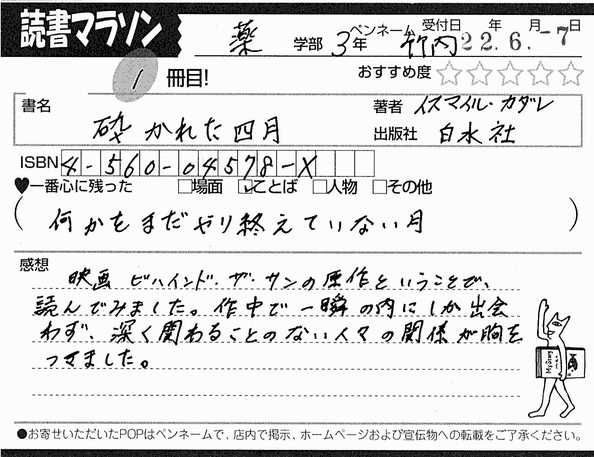 読書マラソン
薬 学部 3年 ペンネーム 竹内 受付日 年 月 日 22.6.-7
1 冊目!
おすすめ度 ☆☆☆☆☆
書名 砕かれた四月
著者 イスマイル・カダレ
出版社 白水社
ISBN 4-560-04578-X
♥一番心に残った □場面 ☑ことば □人物 □その他
(何かをまだやり終えていない月)
感想
映画 ビハインド・ザ・サンの原作ということで、
読んでみました。作中で一瞬の内にしか出会
わず、深く関わることのない人々の関係が胸を
つきました。
●お寄せいただいたPOPはペンネームで、店内で掲示、ホームページおよび宣伝物への転載をご了承ください。